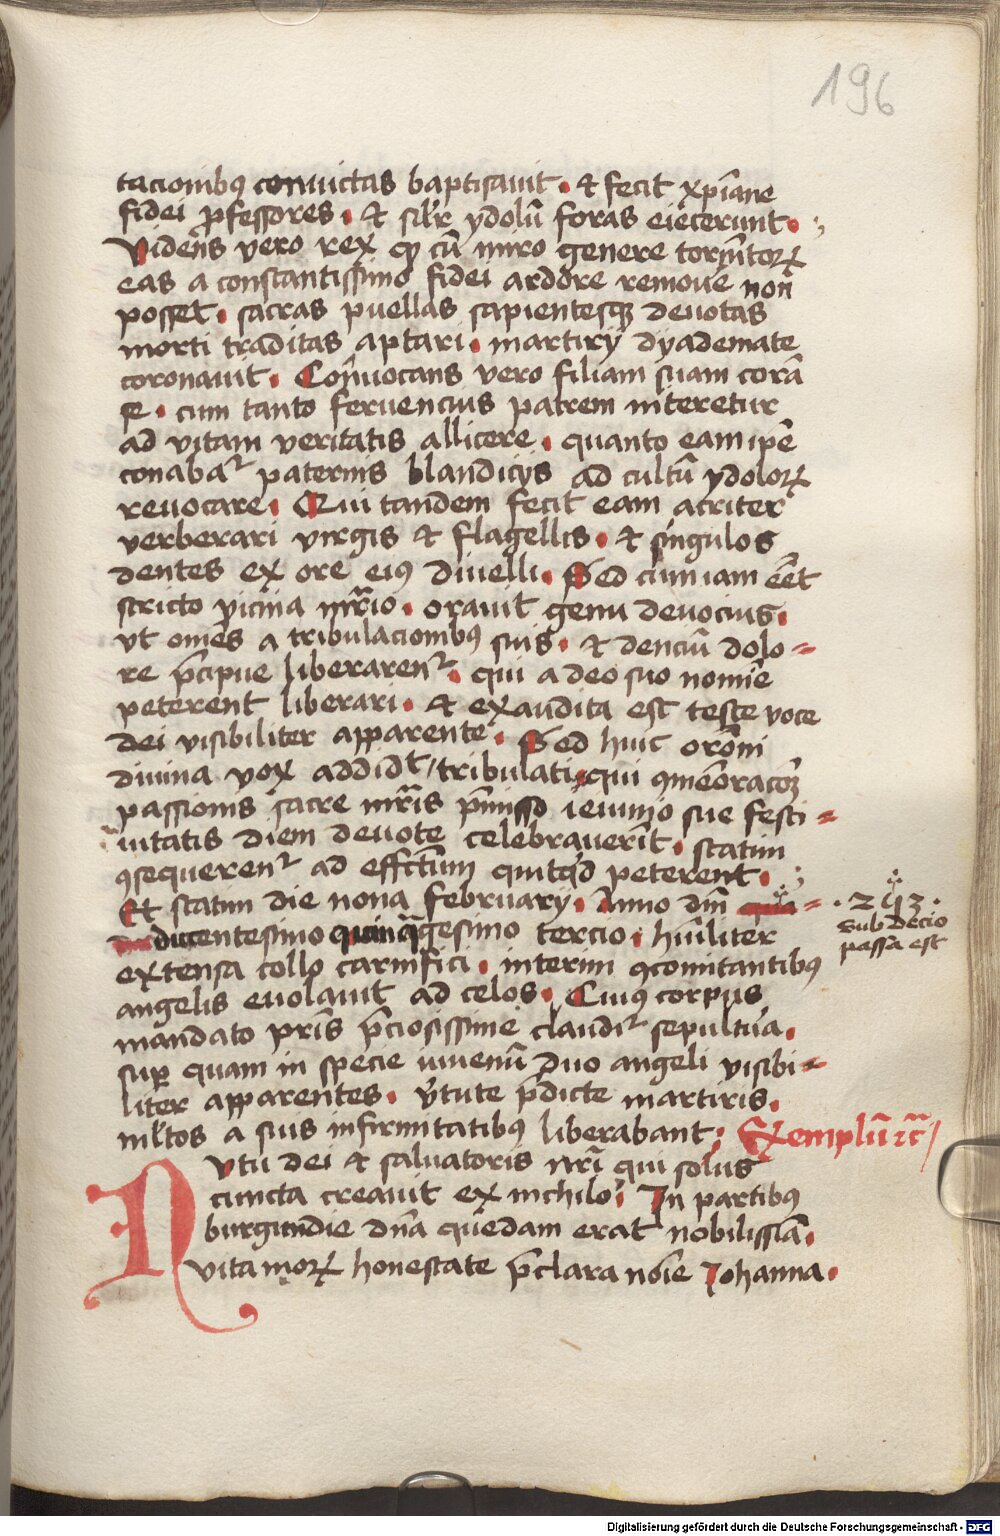 196
tacionibꝰ conuictas baptisauit · & fecit xp̄iane
fidei ꝓfessores · & sil'r ydolū foras eiecerunt ·
Videns vero rex qͥ cū miro genere tormētoꝝ
eas a constantissimo fidei ardore remoue non
posset · sacras puellas sapientesqꝫ deuotas
morti traditas aptari · martirij dyademate
coronauit · Conuocans vero filiam suam corā
se · cum tanto feruencius patrem niteretur
ad vitam veritatis allicere · quanto eam ip̄e
conabat᷑ paternis blandicijs ad cultū ydoloꝝ
reuocare · Qui tandem fecit eam atriter
verberari virgis & flagellis · & singulos
dentes ex ore eiꝰ diuelli · Sed cum iam eēt
stricto vicina mr̄io · orauit genu deuocius ·
vt om̄es a tribulacionibꝰ suis · & denciū dolo=
re p̄cipue liberarent᷑ · qui a deo suo nomīe
peterent liberari · & exaudita est teste voce
dei visibiliter apparente · Sed huic orōni
diuina vox addidit / tribulati · qui ꝯmēoracōꝫ
passionis sacre mr̄is p̄misso ieiunio sue festi=
uitatis diem deuote celebrauerīt · statim
ꝯsequerent᷑ ad effctūm quitqͥd peterent ·
Et statim die nona february · Anno dn̄i =
ducentesimo quinq̄gesimo tercio · hūiliter
extensa collo carnifici · interim ꝯcomitantibꝰ
angelis euolauit ad celos · Cuiꝰ corpus
mandato pr̄is p̄ciosissime claudit᷑ sepultͥa ·
suꝑ quam in specie iuuenū duo angeli visibi=
liter apparentes · v̄tute p̄dicte martiris ·
ml'tos a suis infirmitatibꝰ liberabant · Exemplū ⁊c̄ /
· 253 ·
sub decio
passa est
Nutu dei & saluatoris nr̄i qui solus
cuncta creauit ex nichilo · In partibꝰ
burgundie dn̄a quedam erat nobilissīa ·
vita moꝝ honestate p̄clara noīe Johanna ·
Digitalisierung gefördert durch die Deutsche Forschungsgemeinschaft · DFG